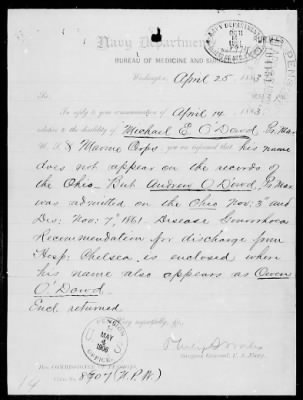 Navy Department,
BUREAU OF MEDICINE AND SURGERY
Washington, April 25, 1883
Sir:
In reply to your communication of April 14, 1883
relative to the disability of Michael E. O'Dowd, Pr. Mar.
U. S. Marine Corps, you are informed that his name
does not appear on the records of
the Ohio. But Andrew O'Dowd, Pr. Mar.
was admitted on the Ohio Nov: 3d and
Dis: Nov: 7th 1861. Disease Gonorrhoea
Recommendation for discharge from
Hosp: Chelsea is enclosed when
his name also appears as Owen
O'Dowd.
Encl. returned
Very respectfully, &c.,
Surgeon General, U. S. Navy.
PENSION
OFFICE
U S
MAY
4
1906
Hon. COMMISSIONER OF PENSIONS.
8407 (H.P.W.)
14